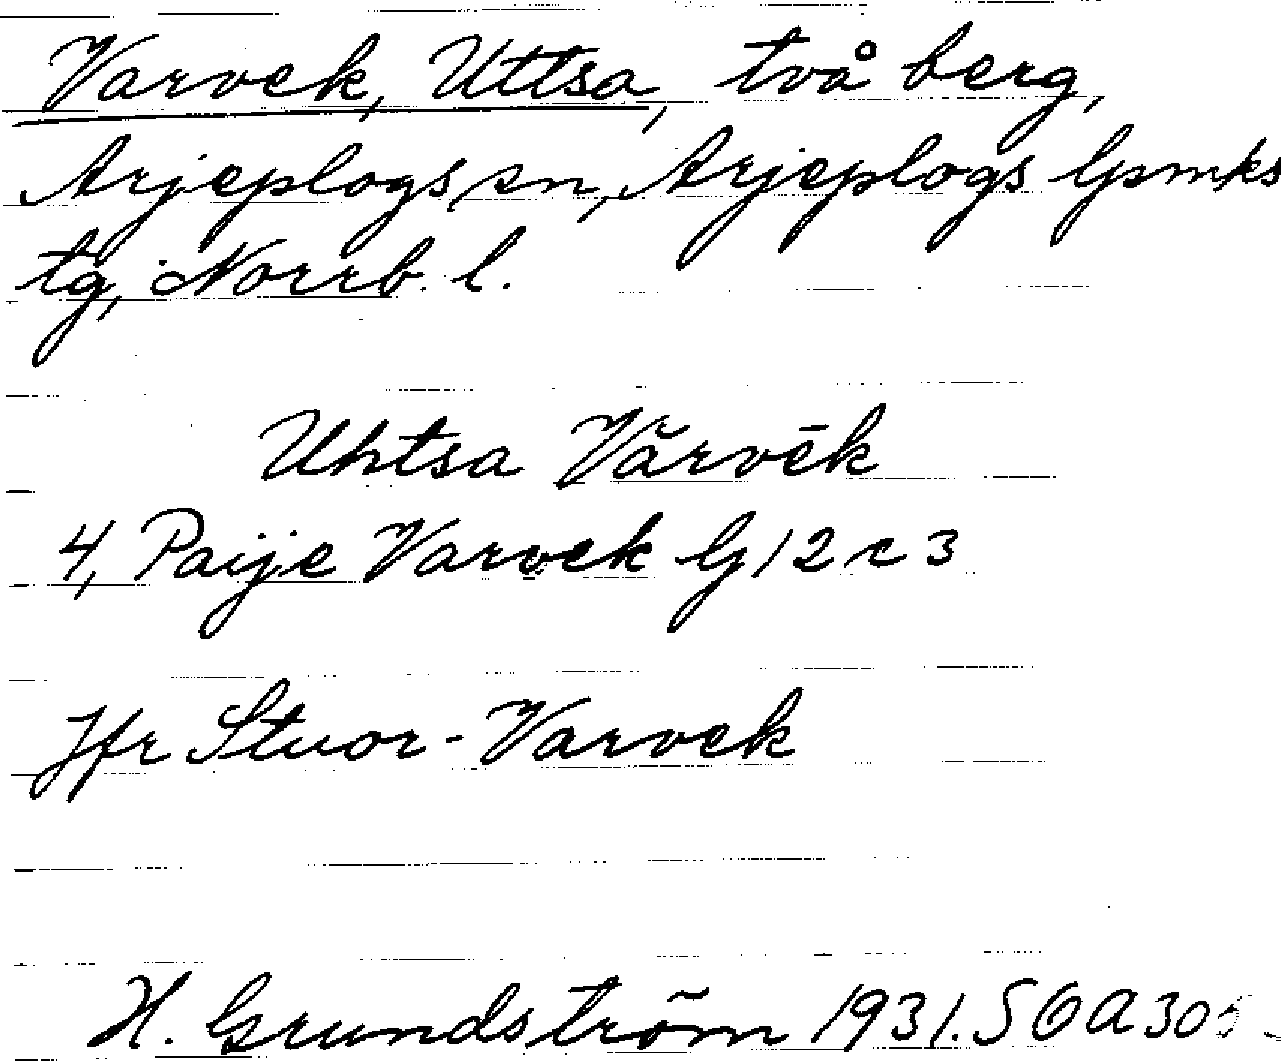 Varvek, Uttsa, två berg,
Arjeplogs sn, Arjeplogs lpmks
tg, Norrb. l.
Uhtsa Vǎrvēk
4, Paije Varvek G 12 c 3
Jfr Stuor-Varvek
H. Grundström 1931. SOA 305